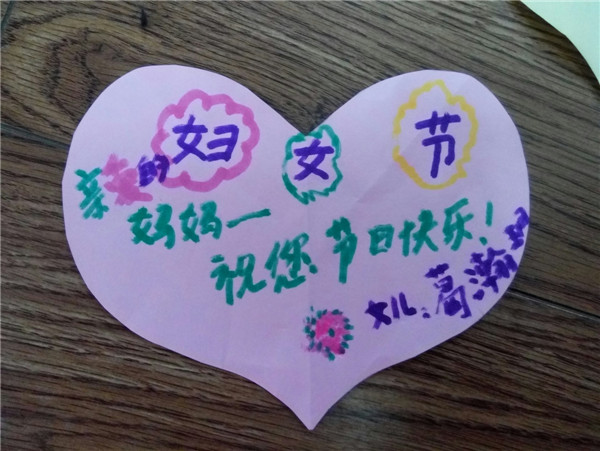 妇女节
亲爱的
妈妈一
祝您节日快乐!
女儿:葛瀚